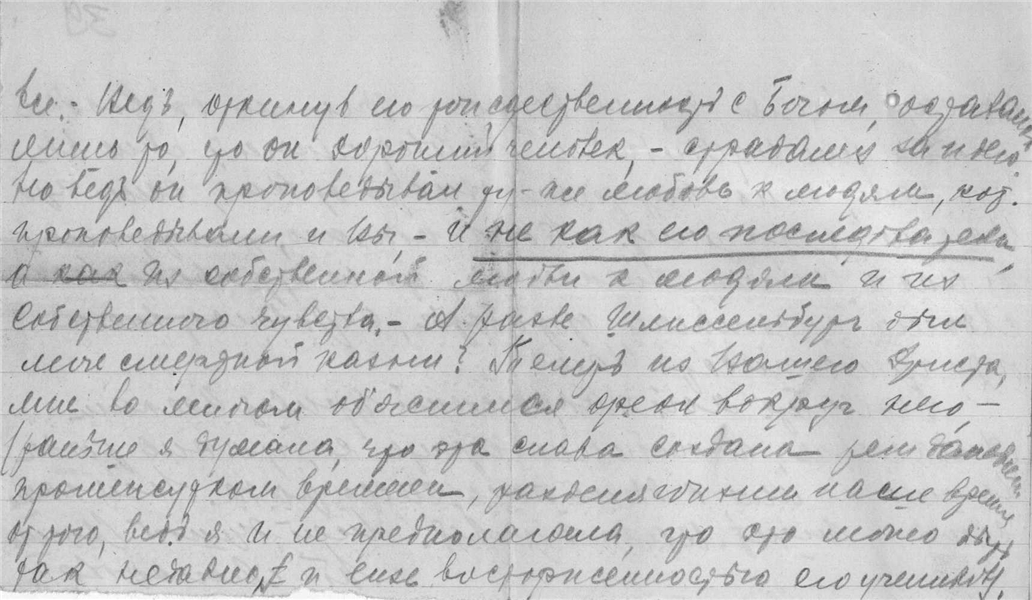 все. – Ведь, откинув его тождественность с Богом, оставалось
лишь то, что он хороший человек, – страдалъ за него
но ведь он проповедывал ту-же любовь к людям, кот.
проповедывали и Вы, – и не как его последователи,
а как из собственной любви к людям и из
собственного чувства. – А разве Шлиссельбург был
легче смертной казни? Теперь из Вашего Христа,
мне во многом объяснился ореол вокруг него –
(раньше я думала, что эта слава создана
промежутком времени, наше время
от того, ведь я и не предполагала, что это могло быть
так недавно) и еще восторженностью его учеников.